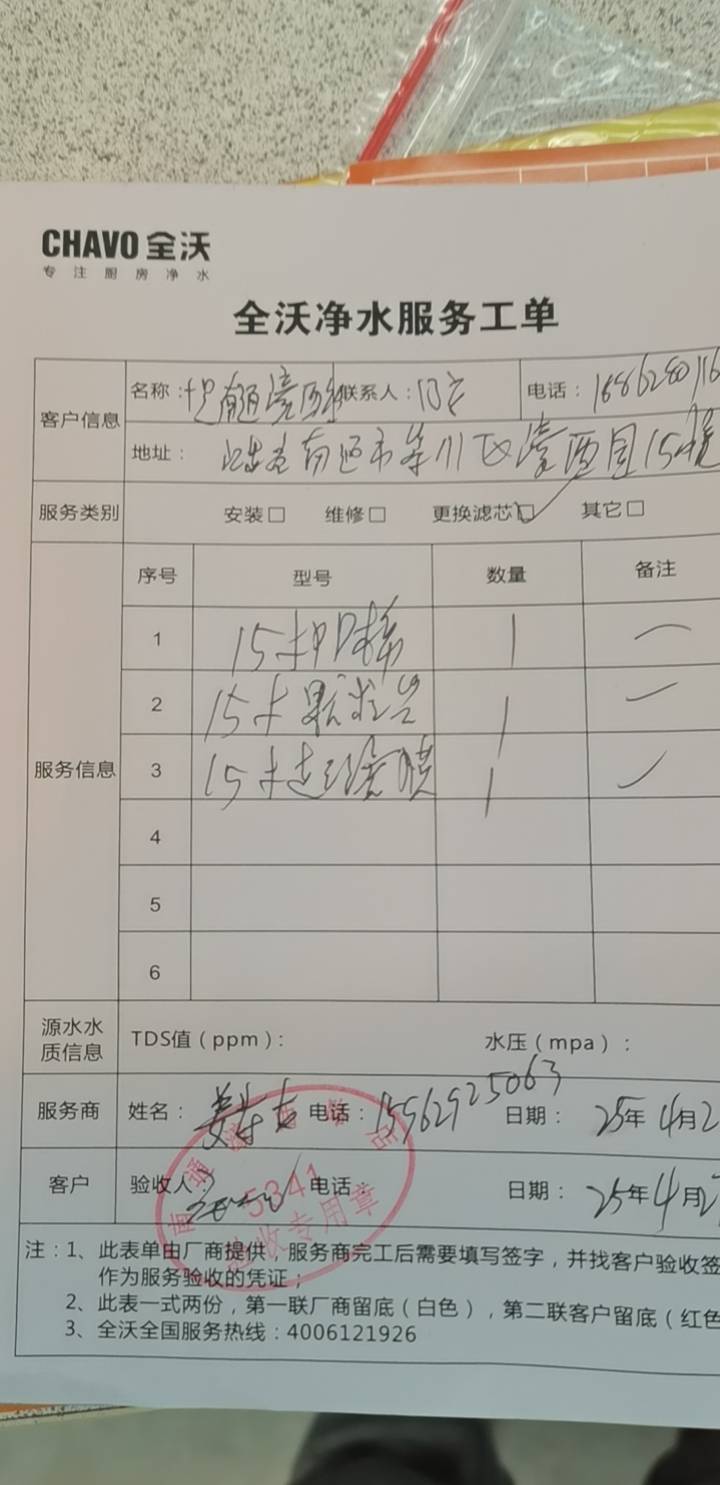 CHAVO 全沃
专注厨房净水
全沃净水服务工单
客户信息
名称： 联系人： 电话：
地址： 南通市 15
服务类别 安装□ 维修□ 更换滤芯□ 其它□
服务信息
序号 型号 数量 备注
1 15寸PP棉 1
2 15寸颗粒炭 1
3 15寸超滤膜 1
4
5
6
源水水质信息 TDS值（ppm）： 水压（mpa）：
服务商 姓名： 电话：15962925063 日期： 25年4月2
客户 验收人： 电话 日期： 25年4月2
5341
验收专用章
注：1、此表单由厂商提供 服务商完工后需要填写签字，并找客户验收签
作为服务验收的凭证；
2、此表一式两份，第一联厂商留底（白色），第二联客户留底（红色
3、全沃全国服务热线：4006121926